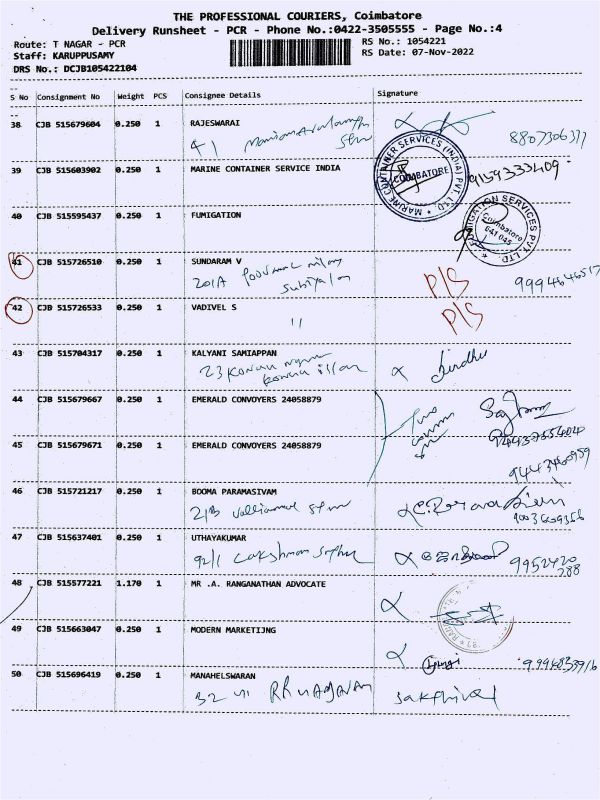 THE PROFESSIONAL COURIERS, Coimbatore
Delivery Runsheet - PCR - Phone No.:0422-3505555 - Page No.:4
Route: T NAGAR - PCR RS No.: 1054221
Staff: KARUPPUSAMY RS Date: 07-Nov-2022
DRS No.: DCJB105422104
S No Consignment No Weight PCS Consignee Details Signature
38 CJB 515679604 0.250 1 RAJESWARAI
41 8807306377
39 CJB 515603902 0.250 1 MARINE CONTAINER SERVICE INDIA
MARINE CONTAINER SERVICES (INDIA) PVT. LTD. COIMBATORE 9159333409
40 CJB 515595437 0.250 1 FUMIGATION
FUMIGATION SERVICES PVT. LTD. Coimbatore 641 045
41 CJB 515726510 0.250 1 SUNDARAM V
201A P/S
42 CJB 515726533 0.250 1 VADIVEL S
11 P/S
43 CJB 515704317 0.250 1 KALYANI SAMIAPPAN
23
44 CJB 515679667 0.250 1 EMERALD CONVOYERS 24058879
45 CJB 515679671 0.250 1 EMERALD CONVOYERS 24058879
9443460959
46 CJB 515721217 0.250 1 BOOMA PARAMASIVAM
21B
47 CJB 515637401 0.250 1 UTHAYAKUMAR
92/1 Lakshman 9952420
288
48 CJB 515577221 1.170 1 MR .A. RANGANATHAN ADVOCATE
49 CJB 515663047 0.250 1 MODERN MARKETIJNG
50 CJB 515696419 0.250 1 MANAHELSWARAN
32 Sakthivel